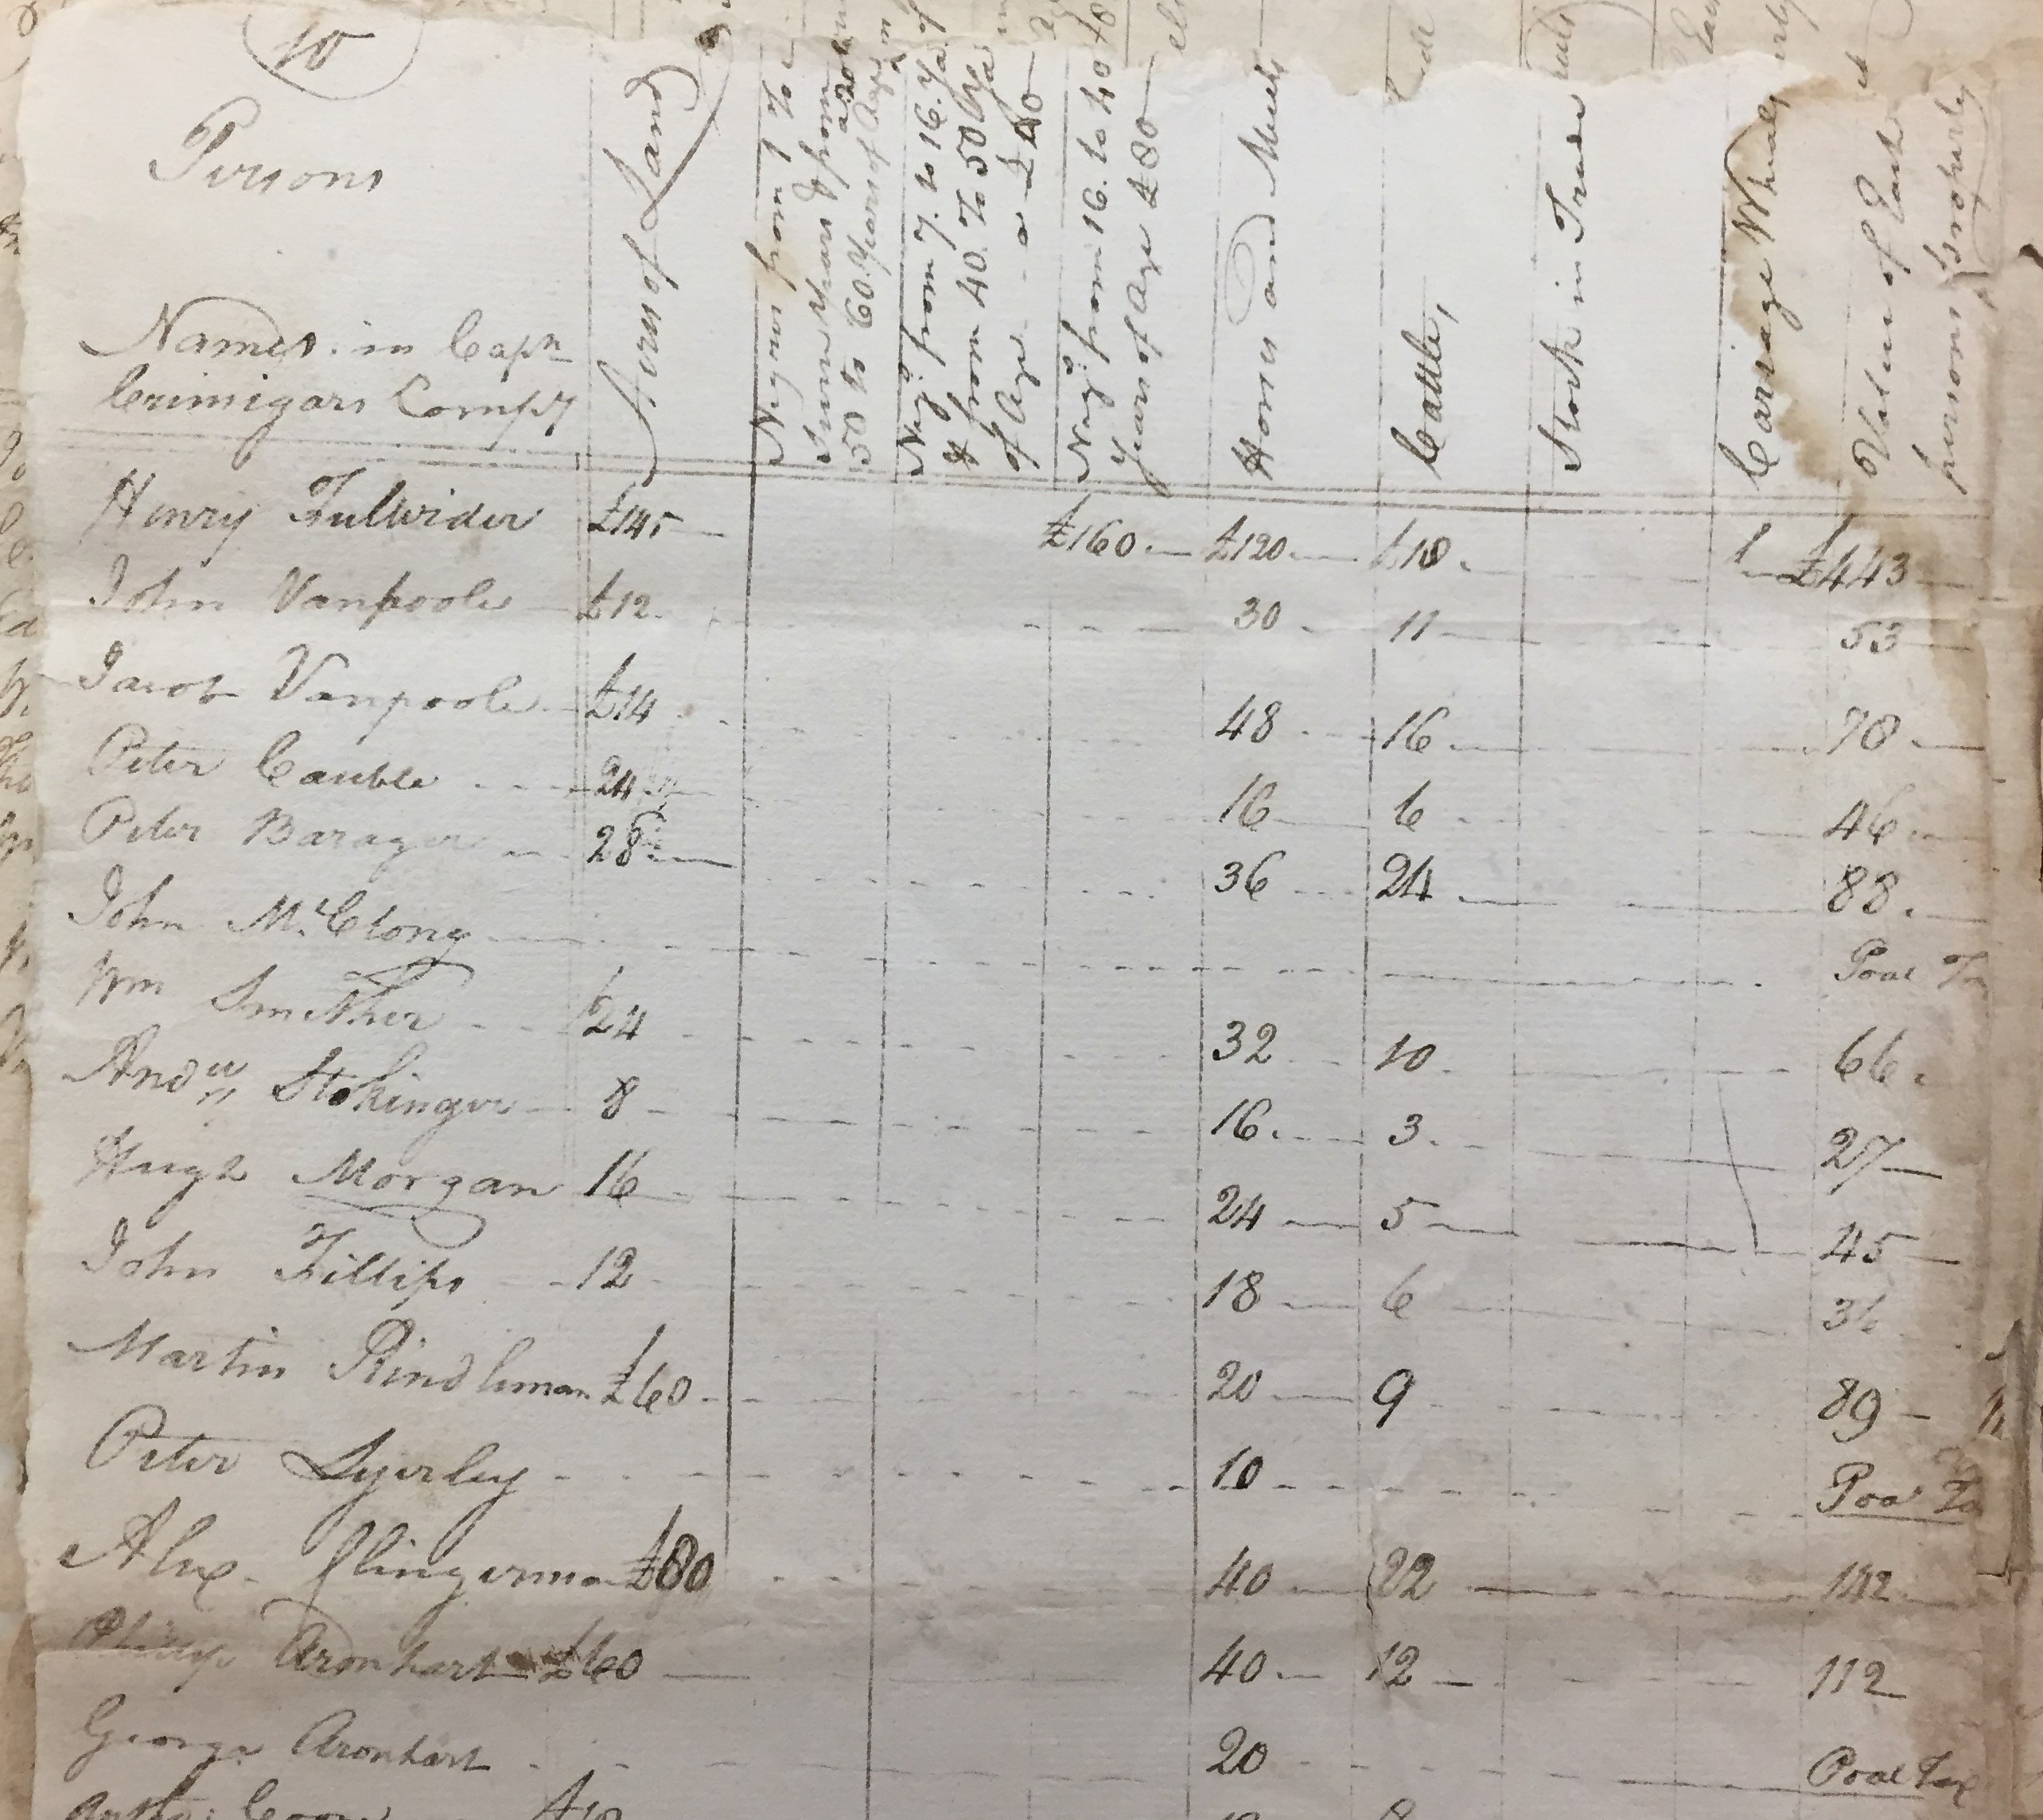 10
Persons
Names in Capn
Crimigars Compy
Acres of Land
Negs from 7. to 16. Ys. of
& from 40. To 50 Ys
of Age - a £40
Negs from 16. to 40
Years of Age £80
Horses and Mules
Cattle,
Stock in Trade
Carriage Wheals
Value of Each
persons property
Henry Fulwider £145 £160 £120 £18 1 £443
John Vanpoole £12 30 11 53
Jacob Vanpoole £14 48 16 78
Peter Cauble 24 16 6 46
Peter Barager 28 36 24 88
John McClong Poal
Wm Smither £24 32 10 66
Andw Stokinger 8 16 3 27
Hugh Morgan 16 24 5 45
John Fillips 12 18 6 36
Martin Rindleman £60 20 9 89
Peter Lyerley 10 Poal
Alex. Clingerman £80 40 22 142
Philip Aronhart £60 40 12 112
George Aronhart 20 Poal Tax